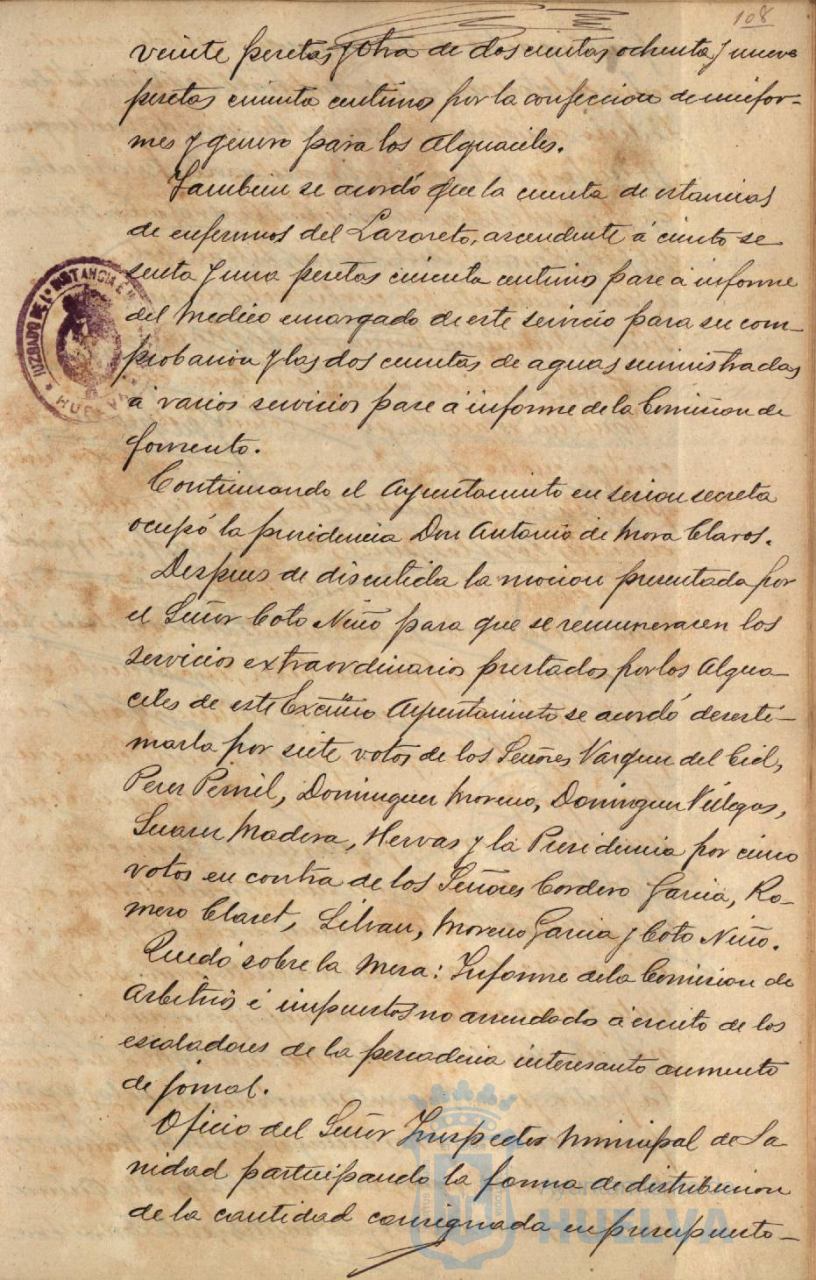 108
veinte pesetas y otra de doscientas ochenta y nueve
pesetas cincuenta centimos por la confeccion de unifor-
mes y genero para los Alguaciles.
Tambien se acordó que la cuenta de estancias
de enfermos del Lazareto, ascendente á ciento se
senta y una pesetas cincuenta centimos pase á informe
del Medico encargado de este servicio para su com-
probacion y las dos cuentas de aguas suministradas
á varios servicios pase á informe de la Comision de
fomento.
Continuando el Ayuntamiento en sesion secreta
ocupó la presidencia Don Antonio de Mora Claros.
Despues de discutida la mocion presentada por
el Señor Coto Niño para que se remunerasen los
servicios extraordinarios prestados por los Algua-
ciles de este Excmo Ayuntamiento se acordó deseti-
marla por siete votos de los Señores Vazquez del Cid,
Perez Pernil, Dominguez Moreno, Dominguez Villegas,
Suarez Madera, Hervas y la Presidencia por cinco
votos en contra de los Señores Cordero Garcia, Ro-
mero Claret, Silvan, Moreno Garcia y Coto Niño.
Quedó sobre la mesa: Informe de la Comision de
Arbitrios é impuestos no arrendados á escrito de los
escaladores de la pescaderia interesando aumento
de jornal.
Oficio del Señor Inspector Municipal de Sa
nidad participando la forma de distribucion
de la cantidad consignada en presupuesto-
JUZGADO DE 1ª INSTANCIA
HUELVA
HUELVA